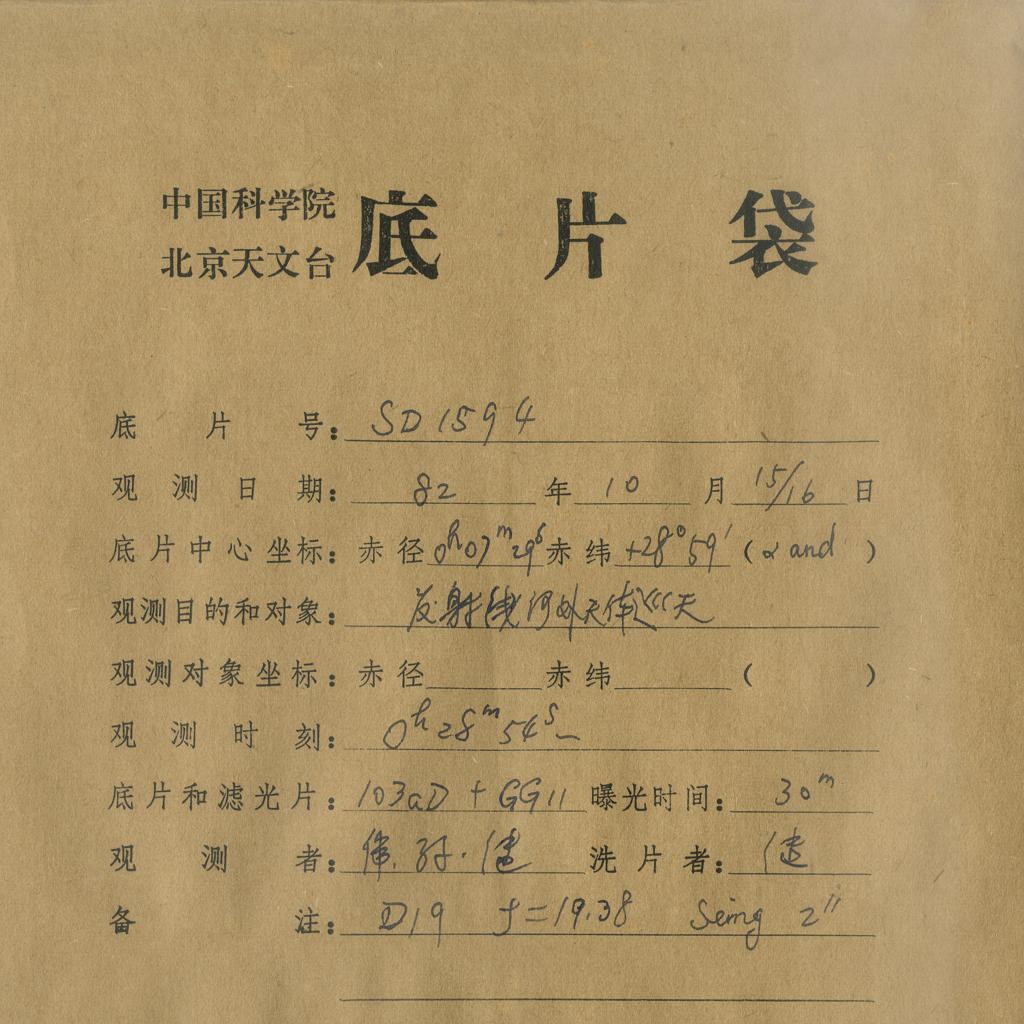 中国科学院
北京天文台
底片袋
底片号: SD1594
观测日期: 82 年 10 月 15/16 日
底片中心坐标: 赤径 0h07m29s 赤纬 +28°59′ (α and)
观测目的和对象: 发射线河外天体巡天
观测对象坐标: 赤径 赤纬 ( )
观测时刻: 0h28m54s—
底片和滤光片: 103aD + GG11 曝光时间: 30m
观测者: 伟. 孙. 健 洗片者: 健
备注: D19 f=19.38 Seing 2″